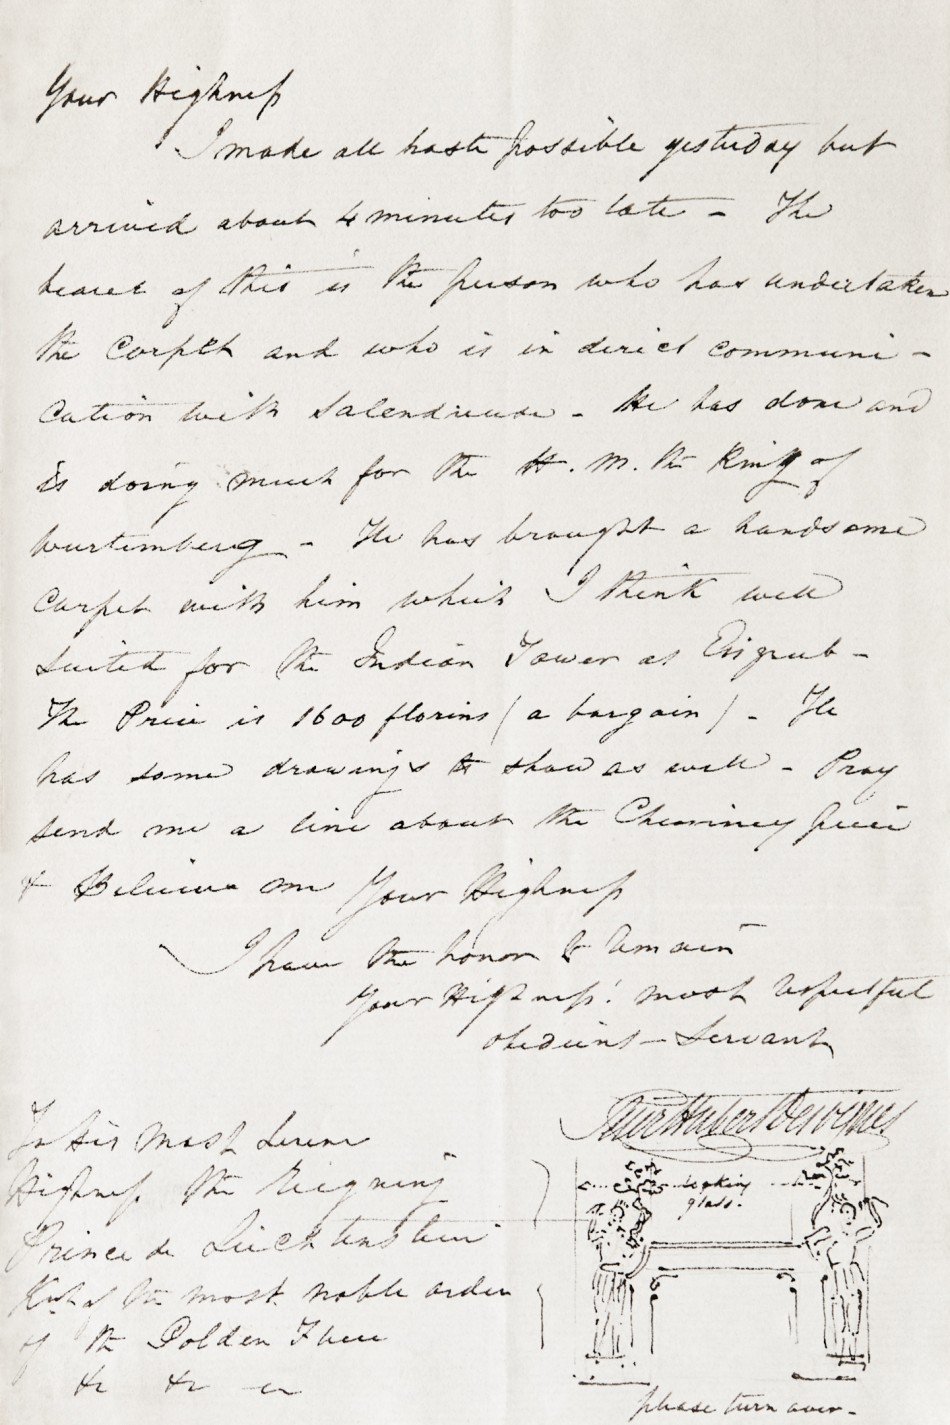 Your Highness
I made all haste possible yesterday but
arrived about 4 minutes too late - The
bearer of this is the person who has undertaken
the Carpet and who is in direct communi-
cation with - He has done and
is doing much for the H. M. the King of
Wurtemberg - He has brought a handsome
Carpet with him which I think well
suited for the Indian Tower at Eisgrub -
The Price is 1600 florins (a bargain) - He
has some drawings to show as well - Pray
send me a line about the Chimney piece
& Believe me Your Highness
I have the honor to remain
Your Highness' most respectful
obedient - Servant
Hubert Desvignes
To His Most Serene
Highness the Reigning
Prince de Liechtenstein
Knt of the most noble order
of the Golden Fleece
&c &c &c
looking
glass.
please turn over -